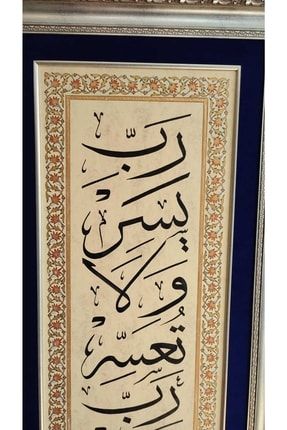 رَبِّ
يَسِّرْ
وَلَا
تُعَسِّرْ
رَبِّ